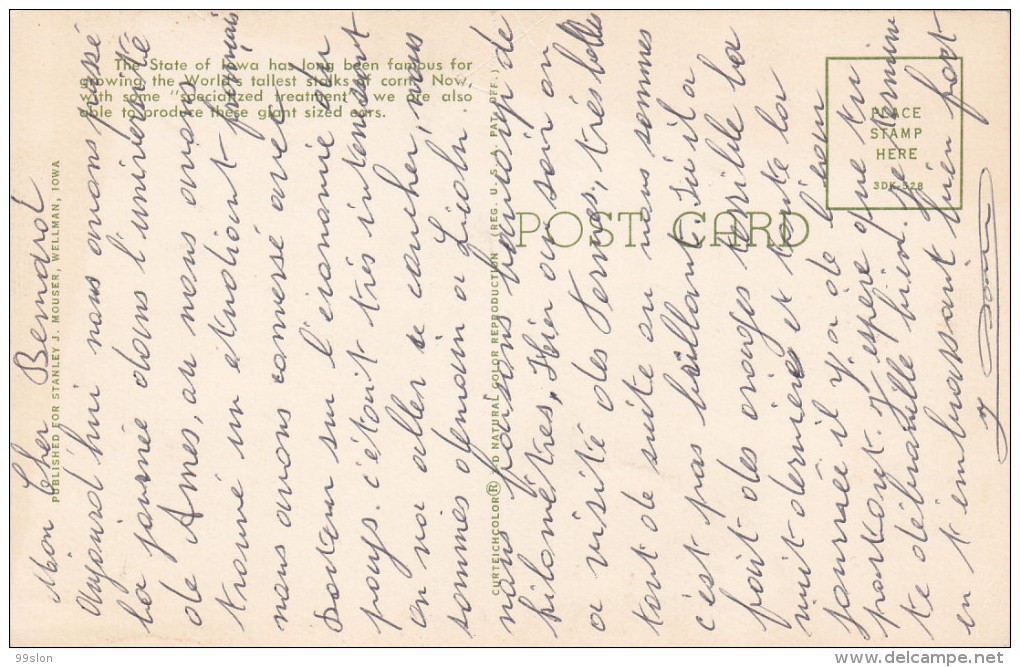 The State of Iowa has long been famous for
growing the World's tallest stalks of corn. Now,
with some "specialized treatment" we are also
able to produce these giant sized ears.
PUBLISHED FOR STANLEY J. MOUSER, WELLMAN, IOWA
CURTEICHCOLOR® 3-D NATURAL COLOR REPRODUCTION (REG. U. S. A. PAT. OFF.)
POST CARD
PLACE
STAMP
HERE
3DK-528
Mon Cher Bernard
Aujourd'hui nous avons passé
la journée dans l'université
de Ames, ou nous avons
trouvé un étudiant français
nous avons conversé avec
sur l'économie du
pays. c'était très intéressant
on va aller se coucher, nous
sommes demain a Lincoln.
nous faisons beaucoup de
kilomètres, Hier ou soir on
a visité des Fermes, très belles
tout de suite ou nous sommes
c'est pas brillant, ici il a
fait des orages terrible la
nuit dernière et toute la
journée il y a de l'eau
partout. J'espère que tu
te débrouille bien. Je termine
en t'embrassant bien fort
99slon
© delcampe.net